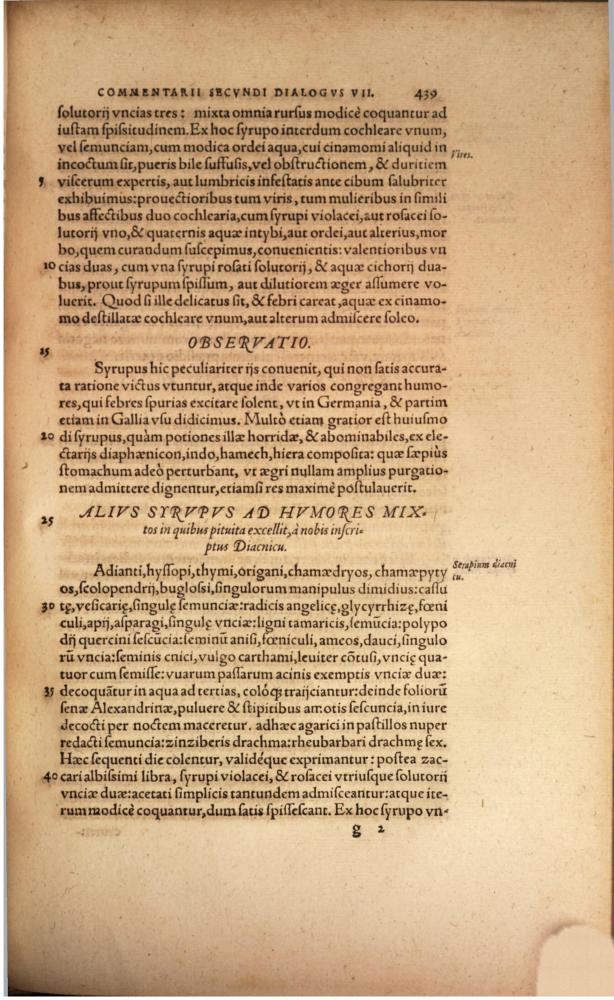 COMMENTARII SECVNDI DIALOGVS VII. 439
ſolutorij vncias tres: mixta omnia rurſus modicè coquantur ad
iuſtam ſpiſsitudinem. Ex hoc ſyrupo interdum cochleare vnum,
vel ſemunciam, cum modica ordei aqua, cui cinamomi aliquid in
incoctum ſit, pueris bile ſuffuſis, vel obſtructionem, & duritiem
Vires.
5 viſcerum expertis, aut lumbricis infeſtatis ante cibum ſalubriter
exhibuimus: prouectioribus tum viris, tum mulieribus in ſimili
bus affectibus duo cochlearia, cum ſyrupi violacei, aut roſacei ſo-
lutorij vno, & quaternis aquæ intybi, aut ordei, aut alterius, mor
bo, quem curandum ſuſcepimus, conuenientis: valentioribus vn
10 cias duas, cum vna ſyrupi roſati ſolutorij, & aquæ cichorij dua-
bus, prout ſyrupum ſpiſſum, aut dilutiorem æger aſſumere vo-
luerit. Quod ſi ille delicatus ſit, & febri careat, aquæ ex cinamo-
mo deſtillatæ cochleare vnum, aut alterum admiſcere ſoleo.
15 OBSERVATIO.
Syrupus hic peculiariter ijs conuenit, qui non ſatis accura-
ta ratione victus vtuntur, atque inde varios congregant humo-
res, qui febres ſpurias excitare ſolent, vt in Germania, & partim
etiam in Gallia vſu didicimus. Multò etiam gratior eſt huiuſmo
20 di ſyrupus, quàm potiones illæ horridæ, & abominabiles, ex ele-
ctarijs diaphænicon, indo, hamech, hiera compoſita: quæ ſæpiùs
ſtomachum adeò perturbant, vt ægri nullam amplius purgatio-
nem admittere dignentur, etiamſi res maximè poſtulauerit.
25 ALIVS SYRVPVS AD HVMORES MIX-
tos in quibus pituita excellit, à nobis inſcri-
ptus Diacnicu.
Adianti, hyſſopi, thymi, origani, chamædryos, chamæpyty
Serapium diacni
cu.
os, ſcolopendrij, bugloſsi, ſingulorum manipulus dimidius: caſſu
30 tę, veſicarię, ſingulę ſemunciæ: radicis angelicę, glycyrrhizę, fœni
culi, apij, aſparagi, ſingulę vnciæ: ligni tamaricis, ſemūcia: polypo
dij quercini ſeſcūcia: ſeminū aniſi, fœniculi, ameos, dauci, ſingulo
rū vncia: ſeminis cnici, vulgo carthami, leuiter cōtuſi, vncię qua-
tuor cum ſemiſſe: vuarum paſſarum acinis exemptis vnciæ duæ:
35 decoquātur in aqua ad tertias, colóq; traijciantur: deinde foliorū
ſenæ Alexandrinæ, puluere & ſtipitibus amotis ſeſcuncia, in iure
decocti per noctem maceretur. adhæc agarici in paſtillos nuper
redacti ſemuncia: zinziberis drachma: rheubarbari drachmę ſex.
Hæc ſequenti die colentur, validéque exprimantur: poſtea zac-
40 cari albiſsimi libra, ſyrupi violacei, & roſacei vtriuſque ſolutorij
vnciæ duæ: acetati ſimplicis tantundem admiſceantur: atque ite-
rum modicè coquantur, dum ſatis ſpiſſeſcant. Ex hoc ſyrupo vn-
g 2